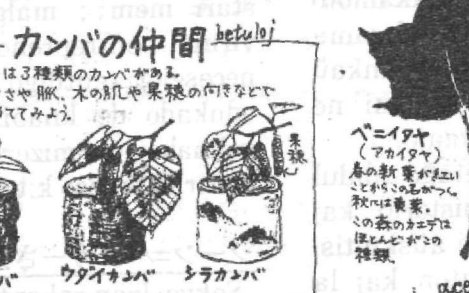 カンバの仲間 betuloj
は3種類のカンバがある。
さや脈、木の肌や果穂の向きなどで
てみよう。
果穂
バ
ウダイカンバ
シラカンバ
ベニイタヤ
(アカイタヤ)
春の新葉が紅い
ことからこの名がつく。
秋には黄葉。
この森のカエデは
ほとんどがこの
種類。